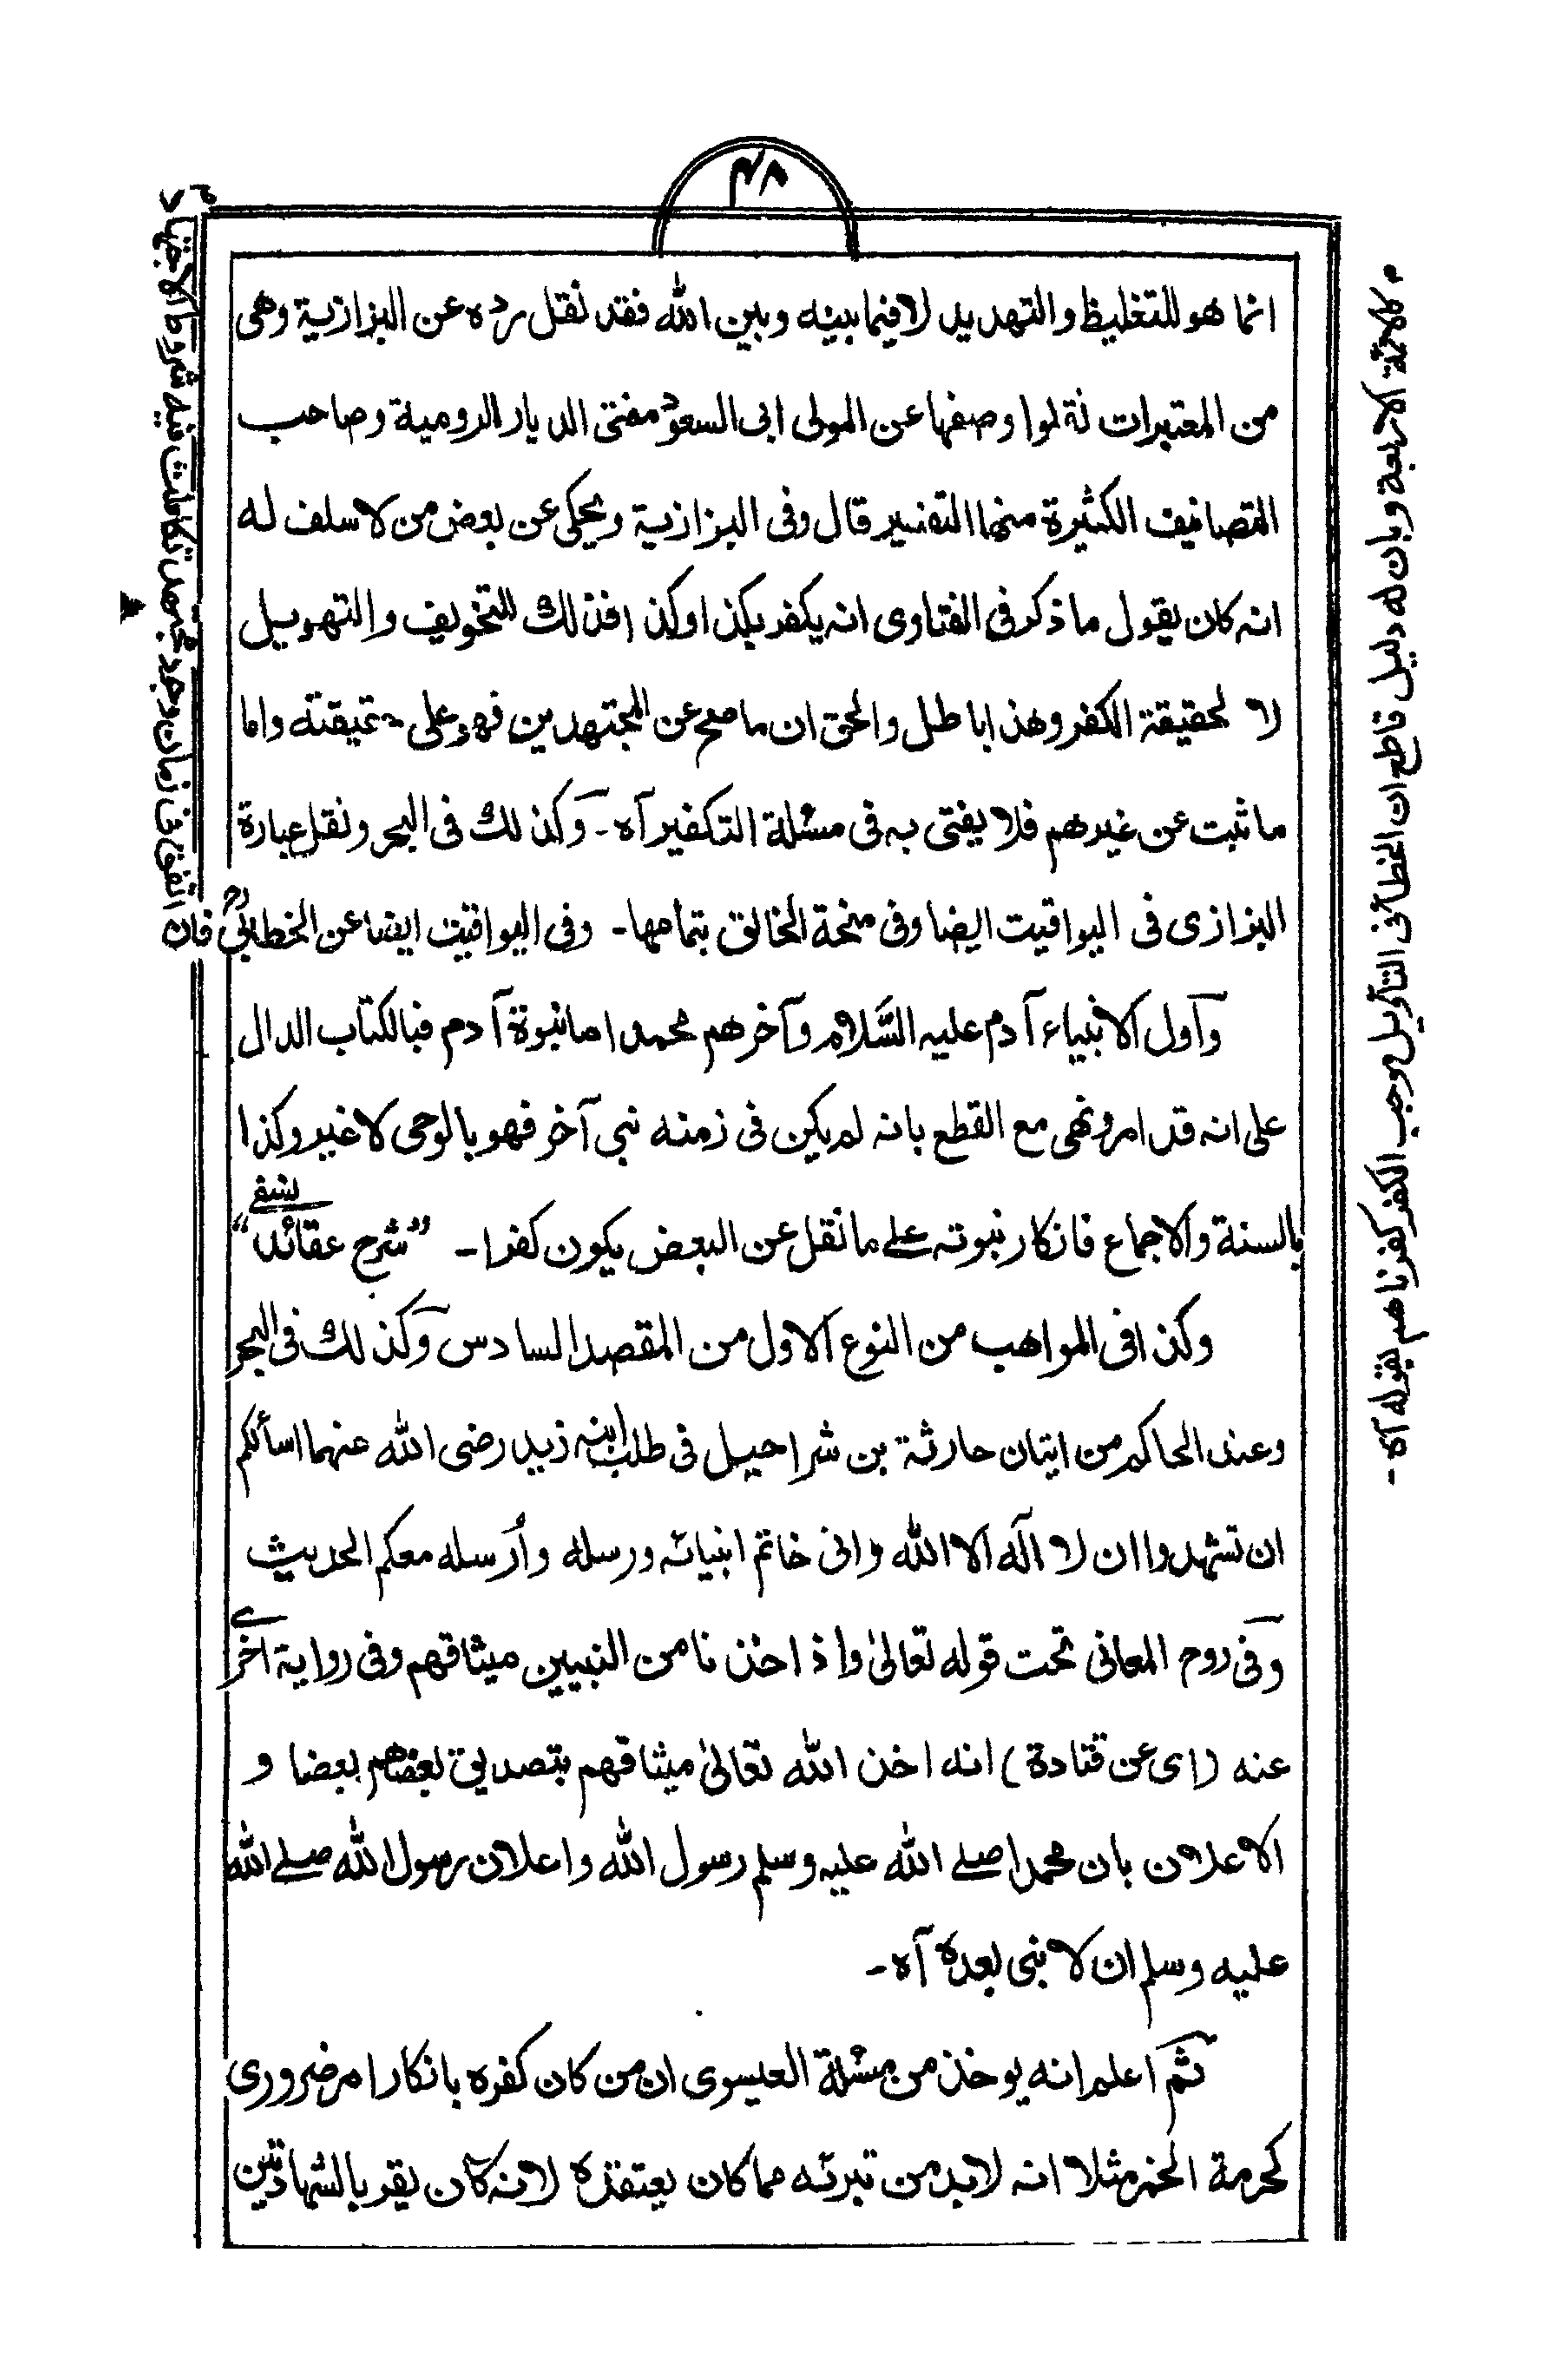 ۴۸
انما هو للتغليظ والتهديد لا فيما بينه وبين الله فقد نقل رده عن البزازية وهى
من المعتبرات نقلوا وصفها عن المولى ابى السعود مفتى الديار الرومية وصاحب
التصانيف الكثيرة منها التفسير قال وفى البزازية ويحكى عن بعض من لا سلف له
انه كان يقول ما ذكر فى الفتاوى انه يكفر بكذا وكذا فذلك للتخويف والتهويل
لا لحقيقة الكفر وهذا باطل والحق ان ما صح عن المجتهدين فهو على حقيقته واما
ما ثبت عن غيرهم فلا يفتى به فى مسئلة التكفير آه ـ وكذلك فى البحر ونقل عبارة
البزازى فى اليواقيت ايضا وفى منحة الخالق بتمامها ـ وفى اليواقيت ايضا عن الخطابىؒ فان
اتفق فى زمان وجد مجتهد تكاملت فيه شروط الاجتهاد
كالائمة الاربعة وبان له دليل قاطع ان الخطأ فى التأويل موجب الكفر كفرناهم بقوله آه ـ
وآول الانبياء آدم عليه السَّلام وآخرهم محمد اما نبوة آدم فبالكتاب الدال
على انه قد امر ونهى مع القطع بانه لم يكن فى زمنه نبى آخر فهو بالوحى لا غير وكذا
بالسنة والاجماع فانكار نبوته علے ما نقل عن البعض يكون كفرا ـ "شرح عقائد نسفے"
وكذا فى المواهب من النوع الاول من المقصد السادس وكذلك فى البحر
وعند الحاكم من اتيان حارثة بن شراحيل فى طلب ابنه زيد رضى الله عنهما اسألكم
ان تشهدوا ان لا آله الا الله وانى خاتم انبيائه ورسله وأرسله معكم الحديث
وفى روح المعانى تحت قوله تعالىٰ واذ اخذنا من النبيين ميثاقهم وفى رواية اخرےٰ
عنه (اى عن قتادة) انه اخذ الله تعالىٰ ميثاقهم بتصديق بعضهم بعضا و
الاعلان بان محمدا صلے الله عليه وسلم رسول الله واعلان رسول الله صلے الله
عليه وسلم ان لا نبى بعده آه ـ
ثم اعلم انه يوخذ من مسئلة العيسوى ان من كان كفره بانكار امر ضرورى
كحرمة الخمر مثلا انه لا بد من تبرئه مما كان يعتقده لانه كان يقر بالشهادتين